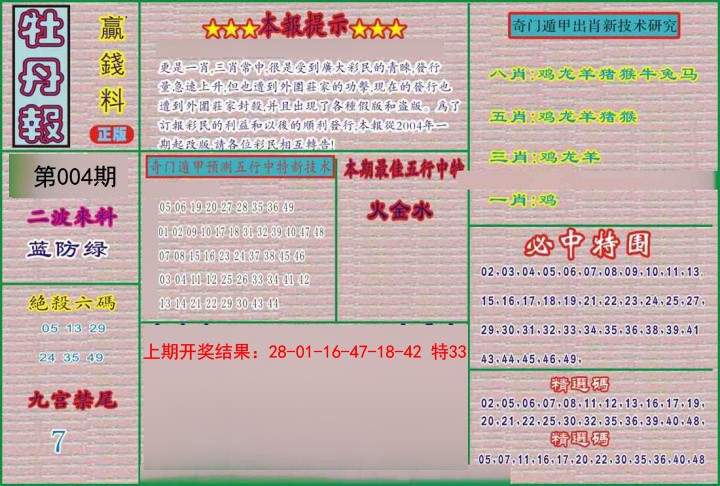 牡丹報
贏錢料
正版
★★★本報提示★★★
更是一肖,三肖常中,很是受到廣大彩民的青睞,發行
量急速上升,但也遭到外圍莊家的功擊,現在的發行也
遭到外圍莊家封殺,并且出現了各種假版和盗版。爲了
訂報彩民的利益和以後的順利發行,本報從2004年一
期起改版,請各位彩民相互轉告!
奇门遁甲出肖新技术研究
八肖:鸡龙羊猪猴牛兔马
五肖:鸡龙羊猪猴
三肖:鸡龙羊
一肖:鸡
第004期
二波來料
蓝防绿
絕殺六碼
05 13 29
24 35 49
九宫禁尾
7
奇门遁甲预测五行中特新技术
05 06 19 20 27 28 35 36 49
01 02 09 10 17 18 31 32 39 40 47 48
07 08 15 16 23 24 37 38 45 46
03 04 11 12 25 26 33 34 41 42
13 14 21 22 29 30 43 44
本期最佳五行中特
火金水
上期开奖结果：28-01-16-47-18-42 特33
必中特围
02,03,04,05,06,07,08,09,10,11,13,
15,16,17,18,19,21,22,23,24,25,27,
29,30,31,32,33,34,35,36,38,39,41
43,44,45,46,49,
精選碼
02,05,06,07,08,11,12,13,16,17,19,
20,21,22,25,30,32,35,36,39,40,48,
精選碼
05,07,11,16,17,20,22,30,35,36,40,48